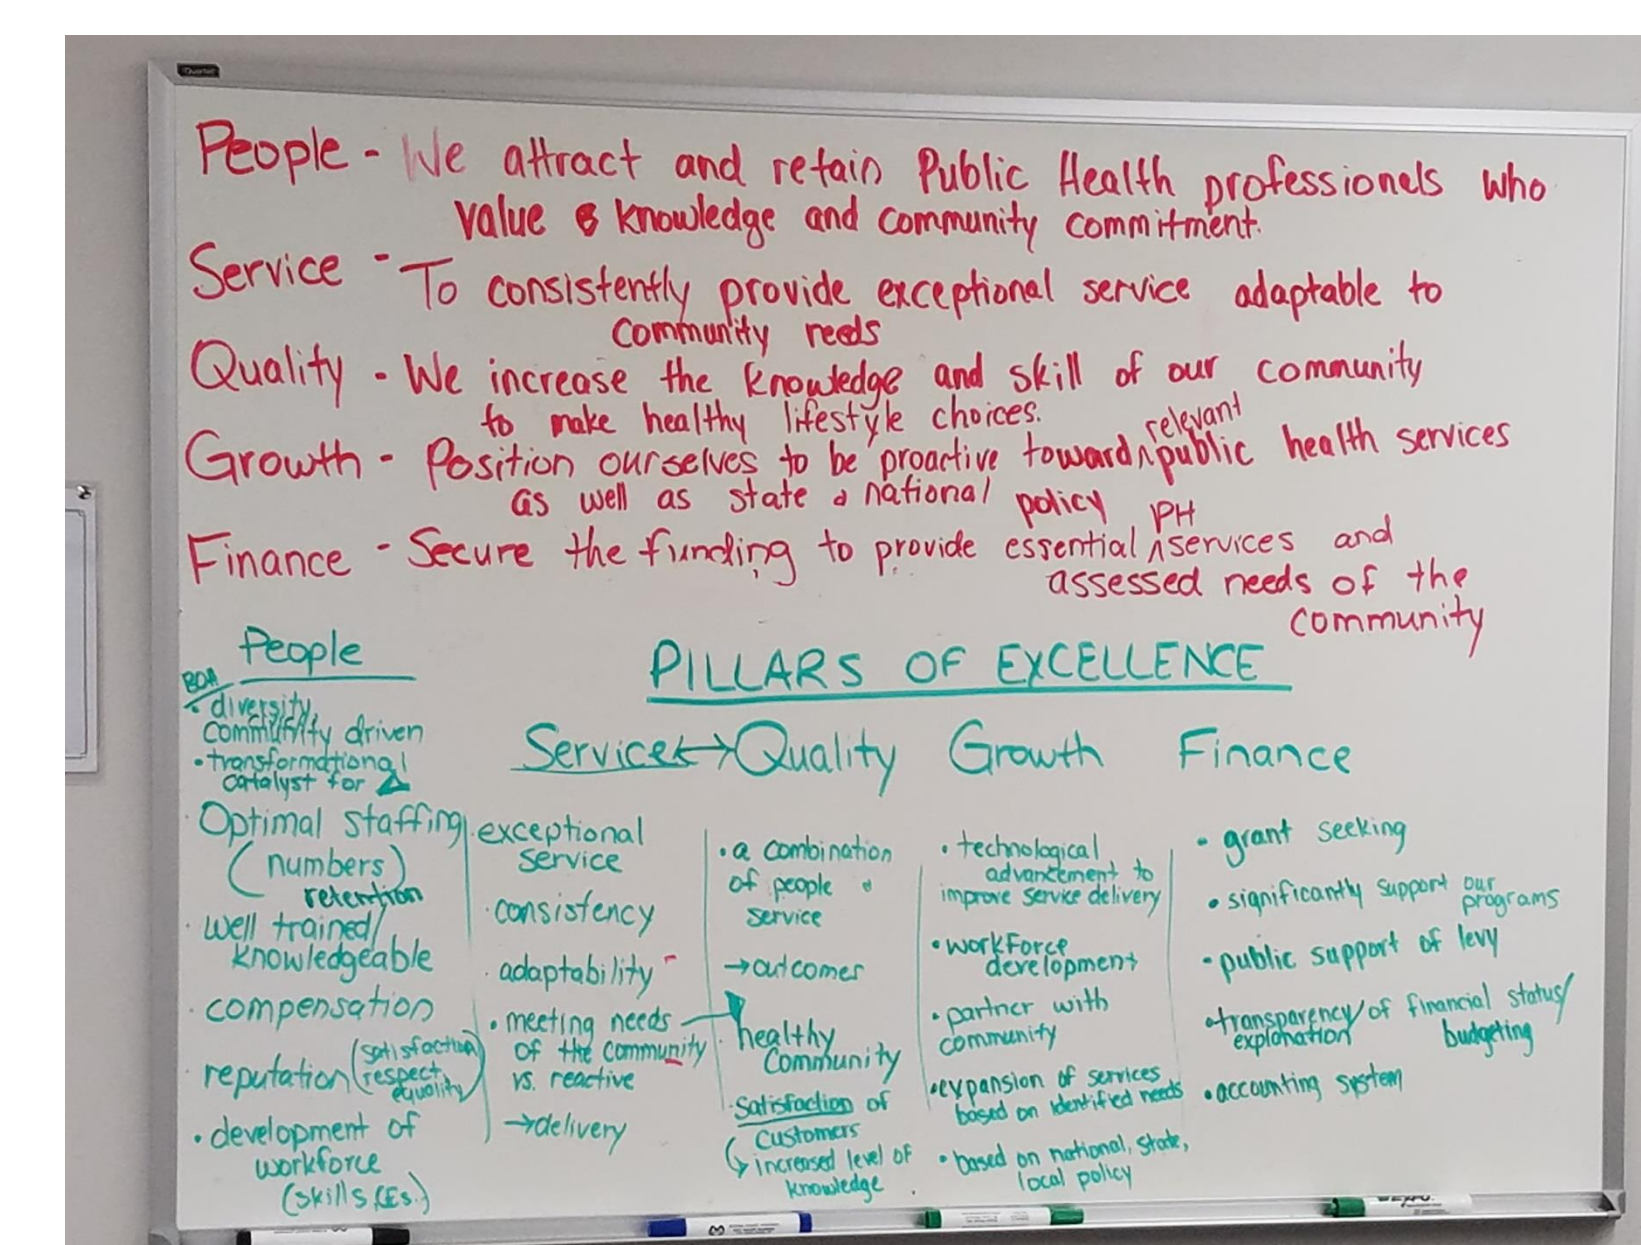 Quartet
People - We attract and retain Public Health professionals who
value & knowledge and community commitment.
Service - To consistently provide exceptional service adaptable to
community needs
Quality - We increase the knowledge and skill of our community
to make healthy lifestyle choices.
relevant
Growth - Position ourselves to be proactive toward ^ public health services
as well as state & national policy
PH
Finance - Secure the funding to provide essential ^ services and
assessed needs of the
community
PILLARS OF EXCELLENCE
People
BOH
• diversity
community driven
• transformational
catalyst for Δ
• Optimal staffing
(numbers)
retention
• well trained/
knowledgeable
• compensation
• reputation (satisfaction
respect
equality)
• development of
workforce
(skills, CEs.)
Service ↔ Quality Growth Finance
exceptional
service
• consistency
• adaptability
• meeting needs
of the community
vs. reactive
→ delivery
• a combination
of people &
service
→ outcomes
• healthy
Community
• Satisfaction of
customers
↳ increased level of
knowledge
• technological
advancement to
improve service delivery
• workforce
development
• partner with
community
• expansion of services
based on identified needs
• based on national, state,
local policy
• grant seeking
• significantly support our
programs
• public support of levy
• transparency/of financial status/
explanation budgeting
• accounting system
EXPO